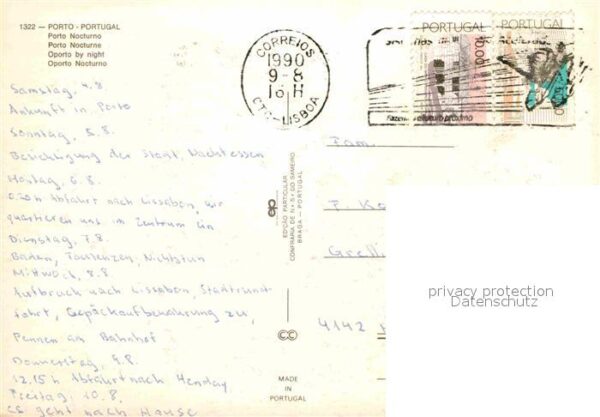 1322 — PORTO - PORTUGAL
Porto Nocturno
Porto Nocturne
Oporto by night
Oporto Nocturno
Samstag, 4.8
Ankunft in Porto
Sonntag, 5.8.
Besichtigung der Stadt, Nachtessen
Montag, 6.8.
Abfahrt nach Lissabon, wir
quartieren uns im Zentrum ein
Dienstag, 7.8.
Baden, Faulenzen, Nichtstun
Mittwoch, 8.8.
Aufbruch nach Lissabon, Stadtrund-
fahrt, Gepäckaufbewahrung zu,
Pennen am Bahnhof
Donnerstag, 9.8.
12.15h Abfahrt nach Henday
Freitag, 10.8.
es geht nach Hause
CORREIOS
1990
9-8
16H
CTC-LISBOA
PORTUGAL
PORTUGAL
futuro próximo
ep
EDIÇÃO PARTICULAR
CONFRARIA DE N.ª S.ª DO SAMEIRO
BRAGA — PORTUGAL
CC
MADE
IN
PORTUGAL
Fam.
F. Ko
Grelli
4142
privacy protection
Datenschutz